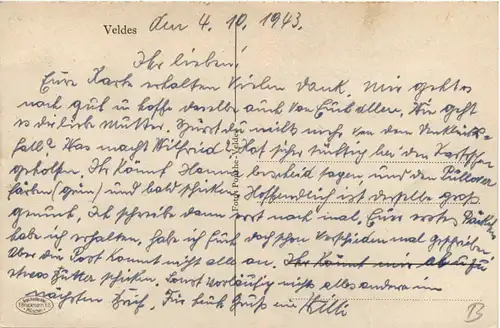 Veldes den 4. 10. 1943.
Ihr lieben!
Eure Karte erhalten Vielen Dank. Mir geht es
noch gut u hoffe dasselbe auch von Euch allen. Wie geht
es der lieben Mutter. Hörst du nichts mehr von dem Unglücks=
fall? Was macht Wilfried? Hat sicher tüchtig bei den Kartoffeln
geholfen. Ihr könnt Hanna bescheid sagen und den Pullover
färben (grün) und bald schicken. Hoffendlich ist derselbe Groß
genung, Ich schreibe dann erst noch mal. Eure erstes Päckchen
habe ich erhalten, habe ich Euch doch schon verschieden mal geschrieben
Aber die Post kommt nicht alle an. Ihr könnt mir ab u zu
etwas Zucker schicken. Sonst vorläufig nichts alles andere im
nächsten Brief. Für heute Gruß euer Willi
Fond: Pretnar-Veldes